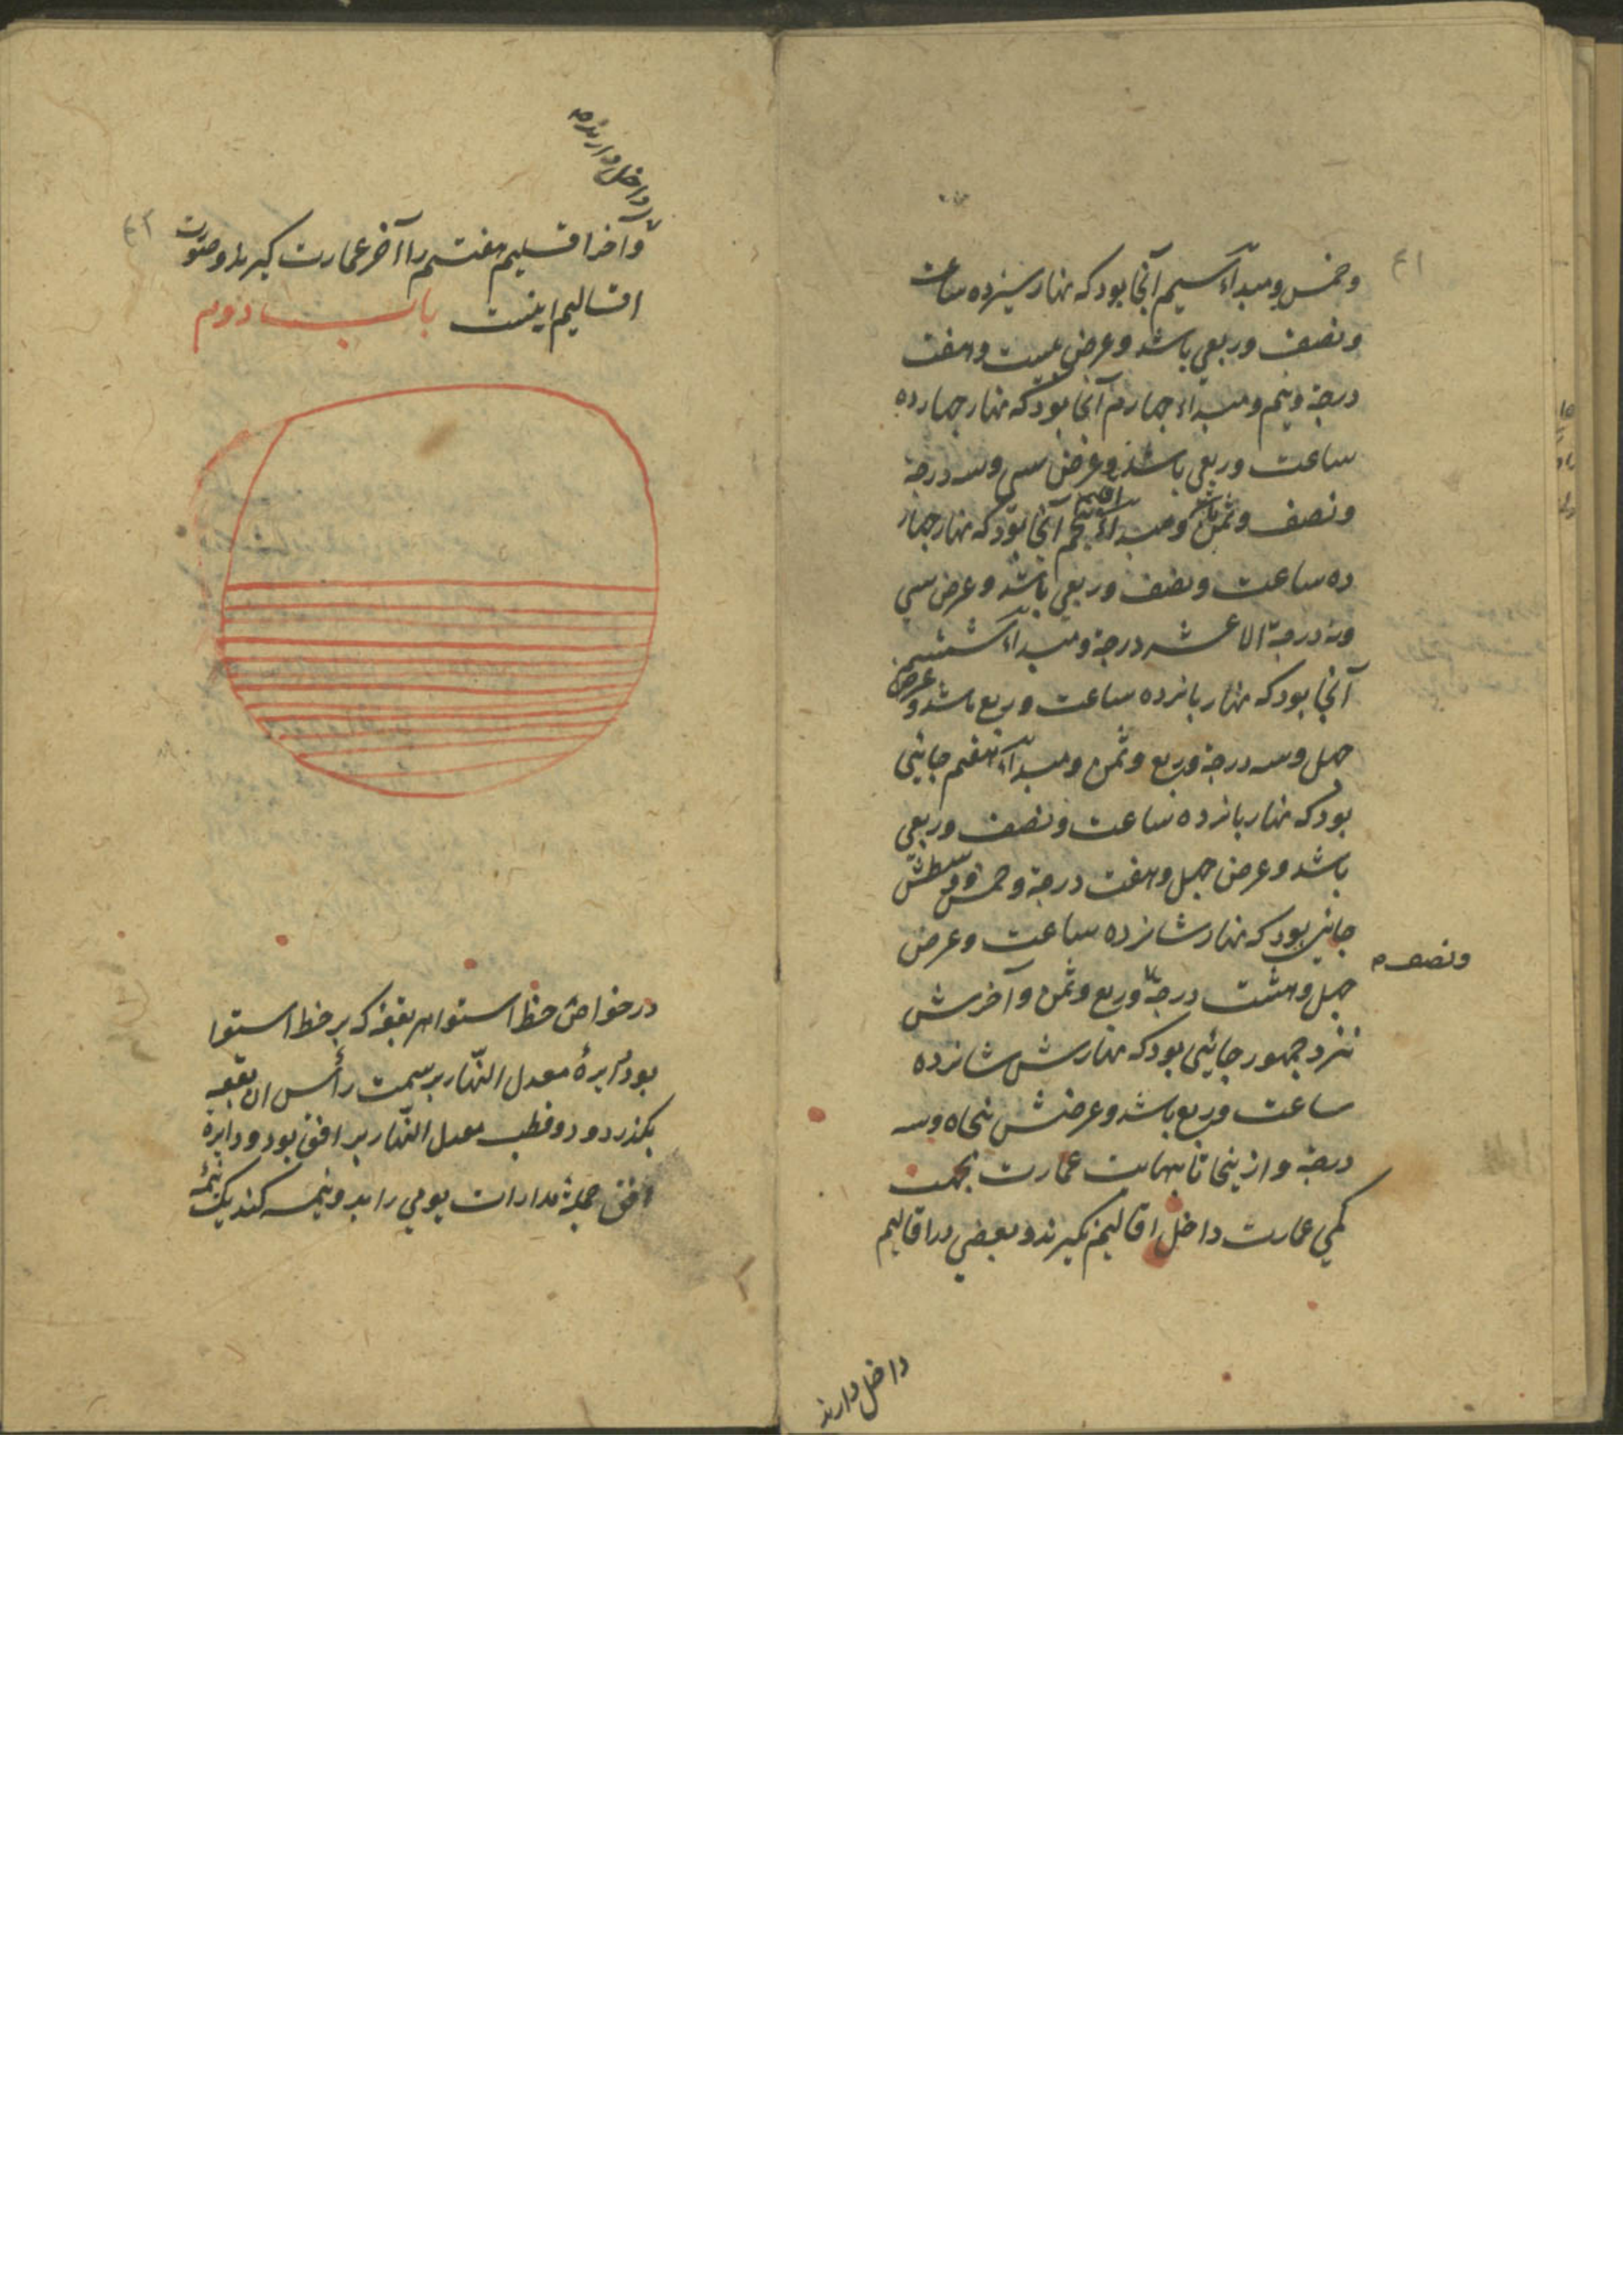 وخمس ومبدأ سیم آنجا بود که نهار سیزده ساعت
ونصف وربعی باشد وعرض بیست وهفت
درجه ونیم ومبداء چهارم آنجا بود که نهار چهارده
ساعت وربعی باشد وعرض سی وسه درجه
ونصف وثمن ومبداء پنجم آنجا بود که نهار چهار
ده ساعت ونصف وربعی باشد وعرض سی
ونه درجه الا عشر درجه ومبداء ششم
آنجا بود که نهار پانزده ساعت وربع باشد وعرض
چهل وسه درجه وربع وثمن ومبداء هفتم جائی
بود که نهار پانزده ساعت ونصف وربعی
باشد وعرض چهل وهفت درجه وخمس ووسطش
جائی بود که نهار شانزده ساعت وعرض
ونصف
چهل وهشت درجه وربع وثمن وآخرش
نزد جمهور جائی بود که نهارش شانزده
ساعت وربع باشد وعرضش پنجاه وسه
درجه واز ینجا تا نهایت عمارت بجهت
کمی عمارت داخل اقالیم نگیرند وبعضی در اقالیم
داخل دارند
داخل دارند
وآخر اقلیم هفتم را آخر عمارت گیرند وصورت
اقالیم اینست باب دوم
در خواص خط استوا هر بقعه که بر خط استوا
بود دایرهٔ معدل النّهار بر سمت رأس ان بقعه
بگذرد ودو قطب معدل النّهار بر افق بود ودایرهٔ
افق جملهٔ مدارات یومی را بدو نیمه کند یک نیمهٔ